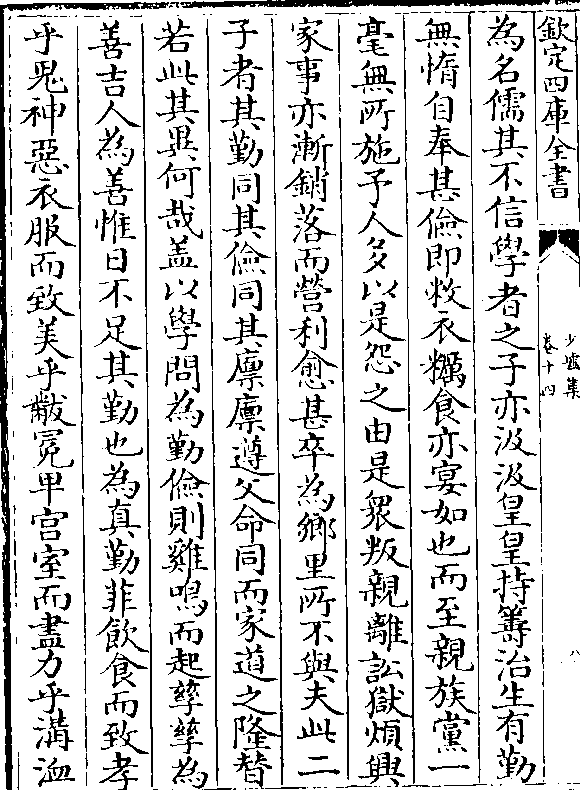 欽定四庫全書
少墟集
卷十四
八
為名儒其不信學者之子亦汲汲皇皇持籌治生有勤
無惰自奉甚儉即敝衣糲食亦宴如也而至親族黨一
毫無所施予人多以是怨之由是衆叛親離訟獄煩興
家事亦漸銷落而營利愈甚卒為鄉里所不與夫此二
子者其勤同其儉同其廪廪遵父命同而家道之隆替
若此其異何哉盖以學問為勤儉則雞鳴而起孳孳為
善吉人為善惟日不足其勤也為真勤菲飲食而致孝
乎鬼神惡衣服而致美乎黻冕卑宫室而盡力乎溝洫